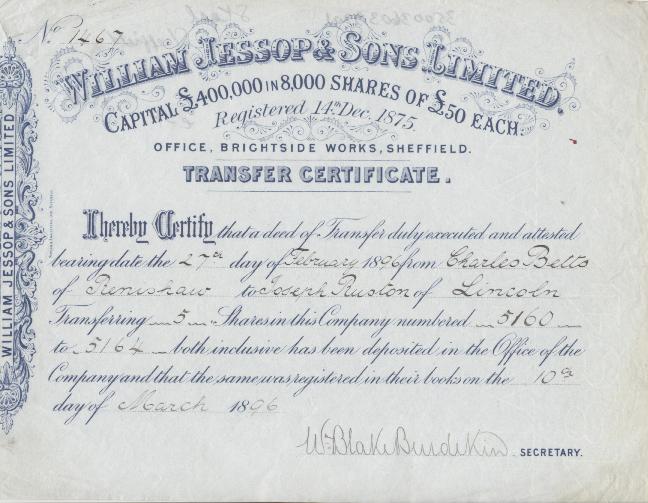 No. 1467
WILLIAM JESSOP & SONS LIMITED.
CAPITAL £400,000 IN 8,000 SHARES OF £50 EACH.
Registered 14th Dec. 1875.
OFFICE, BRIGHTSIDE WORKS, SHEFFIELD.
TRANSFER CERTIFICATE.
I hereby Certify that a deed of Transfer duly executed and attested
bearing date the 27th day of February 1896 from Charles Betts
of Renishaw to Joseph Ruston of Lincoln
Transferring 5 Shares in this Company numbered 5160
to 5164 both inclusive has been deposited in the Office of the
Company and that the same was registered in their books on the 10th
day of March 1896
Wm Blake Burdekin SECRETARY.
WILLIAM JESSOP & SONS LIMITED